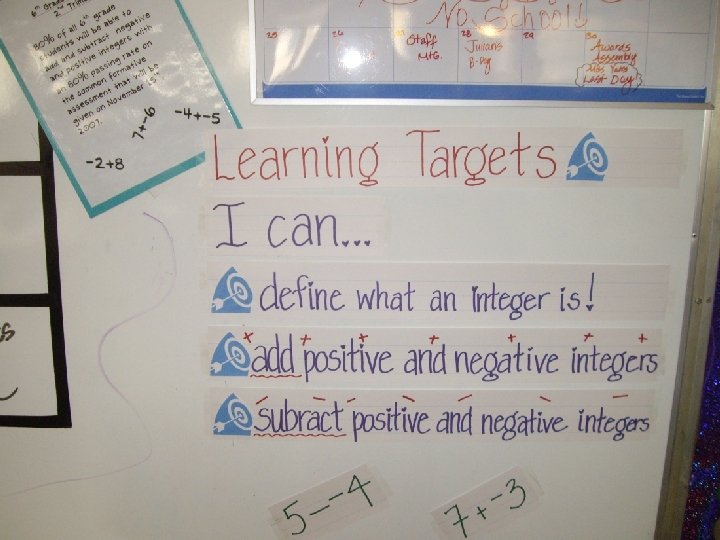 6th Grade
2nd Trim
80% of all 6th grade
students will be able to
add and subtract negative
and positive integers with
an 80% passing rate on
the common formative
assessment that will be
given on November 5th
2007.
-2+8
7+-6
-4+-5
No School!
25
26
27
28
29
30
Staff
Mtg.
Julians
B-Day
Awards
Assembly
Last Day
Learning Targets
I can...
define what an integer is!
+ + + + + + +
add positive and negative integers
subract positive and negative integers
5--4
7+-3